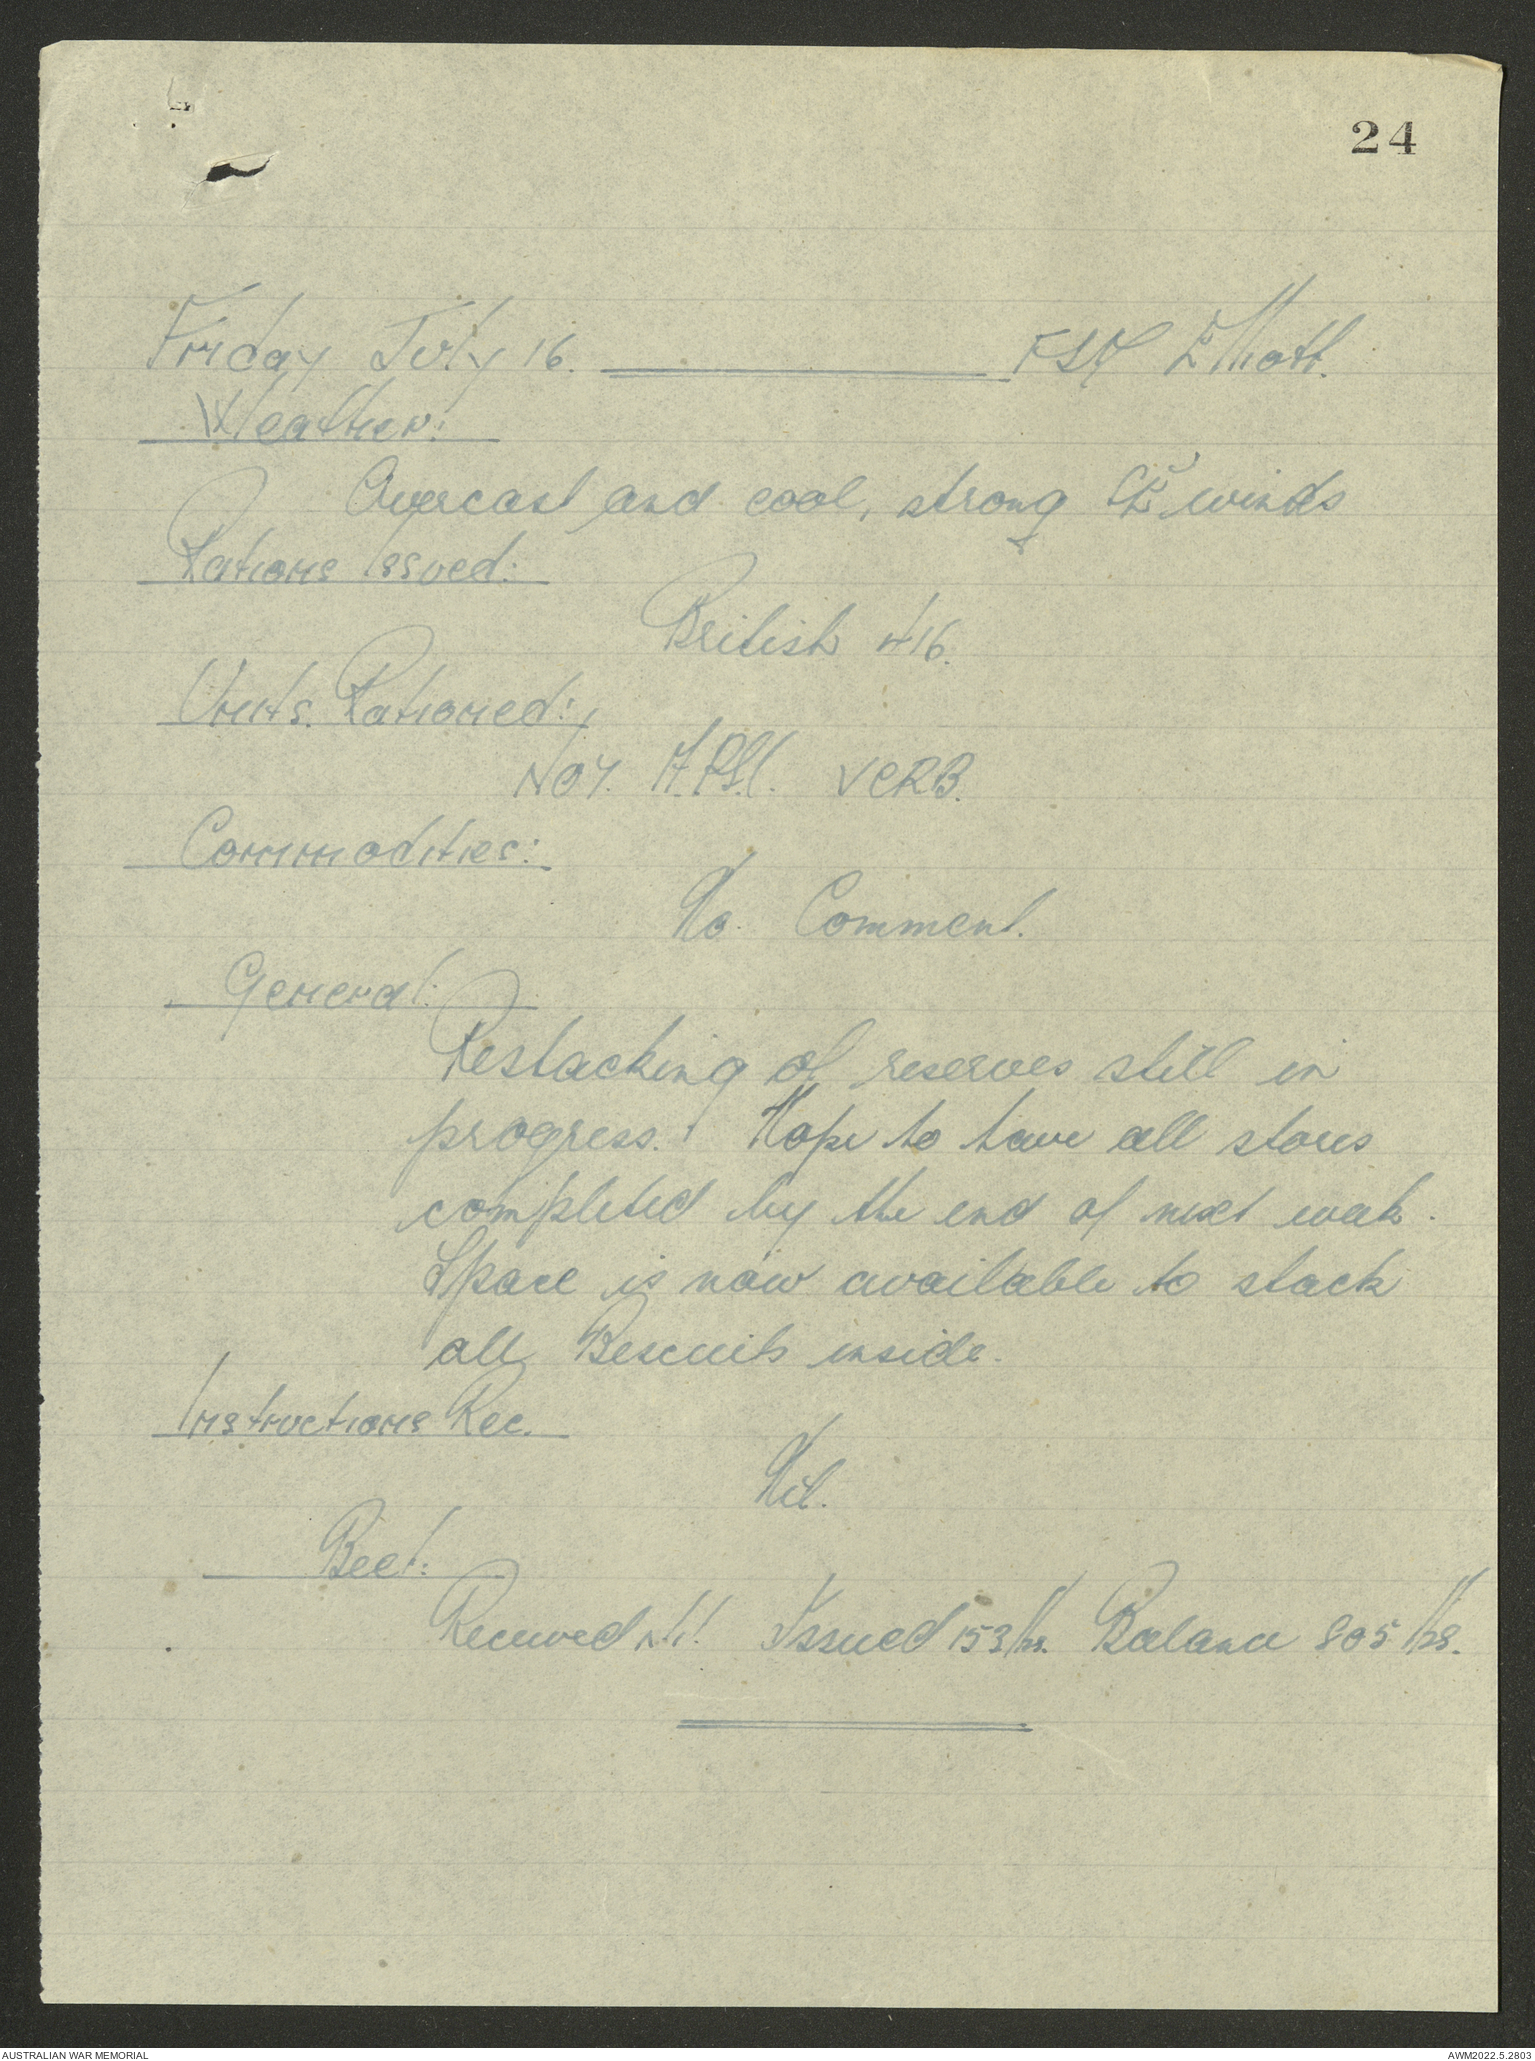 24
Friday July 16. FSD Elliott.
Weather:
Overcast and cool, strong winds
Rations Issued:
British 416.
Units Rationed:
NOY. VERB.
Commodities:
No. Comment.
General:
Restacking of reserves still in
progress. Hope to have all stores
completed by the end of next week.
Space is now available to stack
all Bescuits inside.
Instructions Rec.
Nil.
Beef:
Received Nil Issued 153 lbs. Balance 805 lbs.
AUSTRALIAN WAR MEMORIAL
AWM2022.5.2803